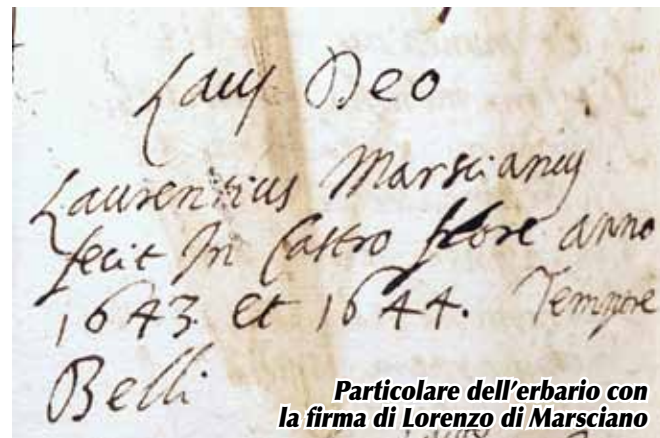 Laus Deo
Laurentius Marscianus
fecit In Castro flore anno
1643 et 1644. Tempore
Belli
Particolare dell'erbario con
la firma di Lorenzo di Marsciano